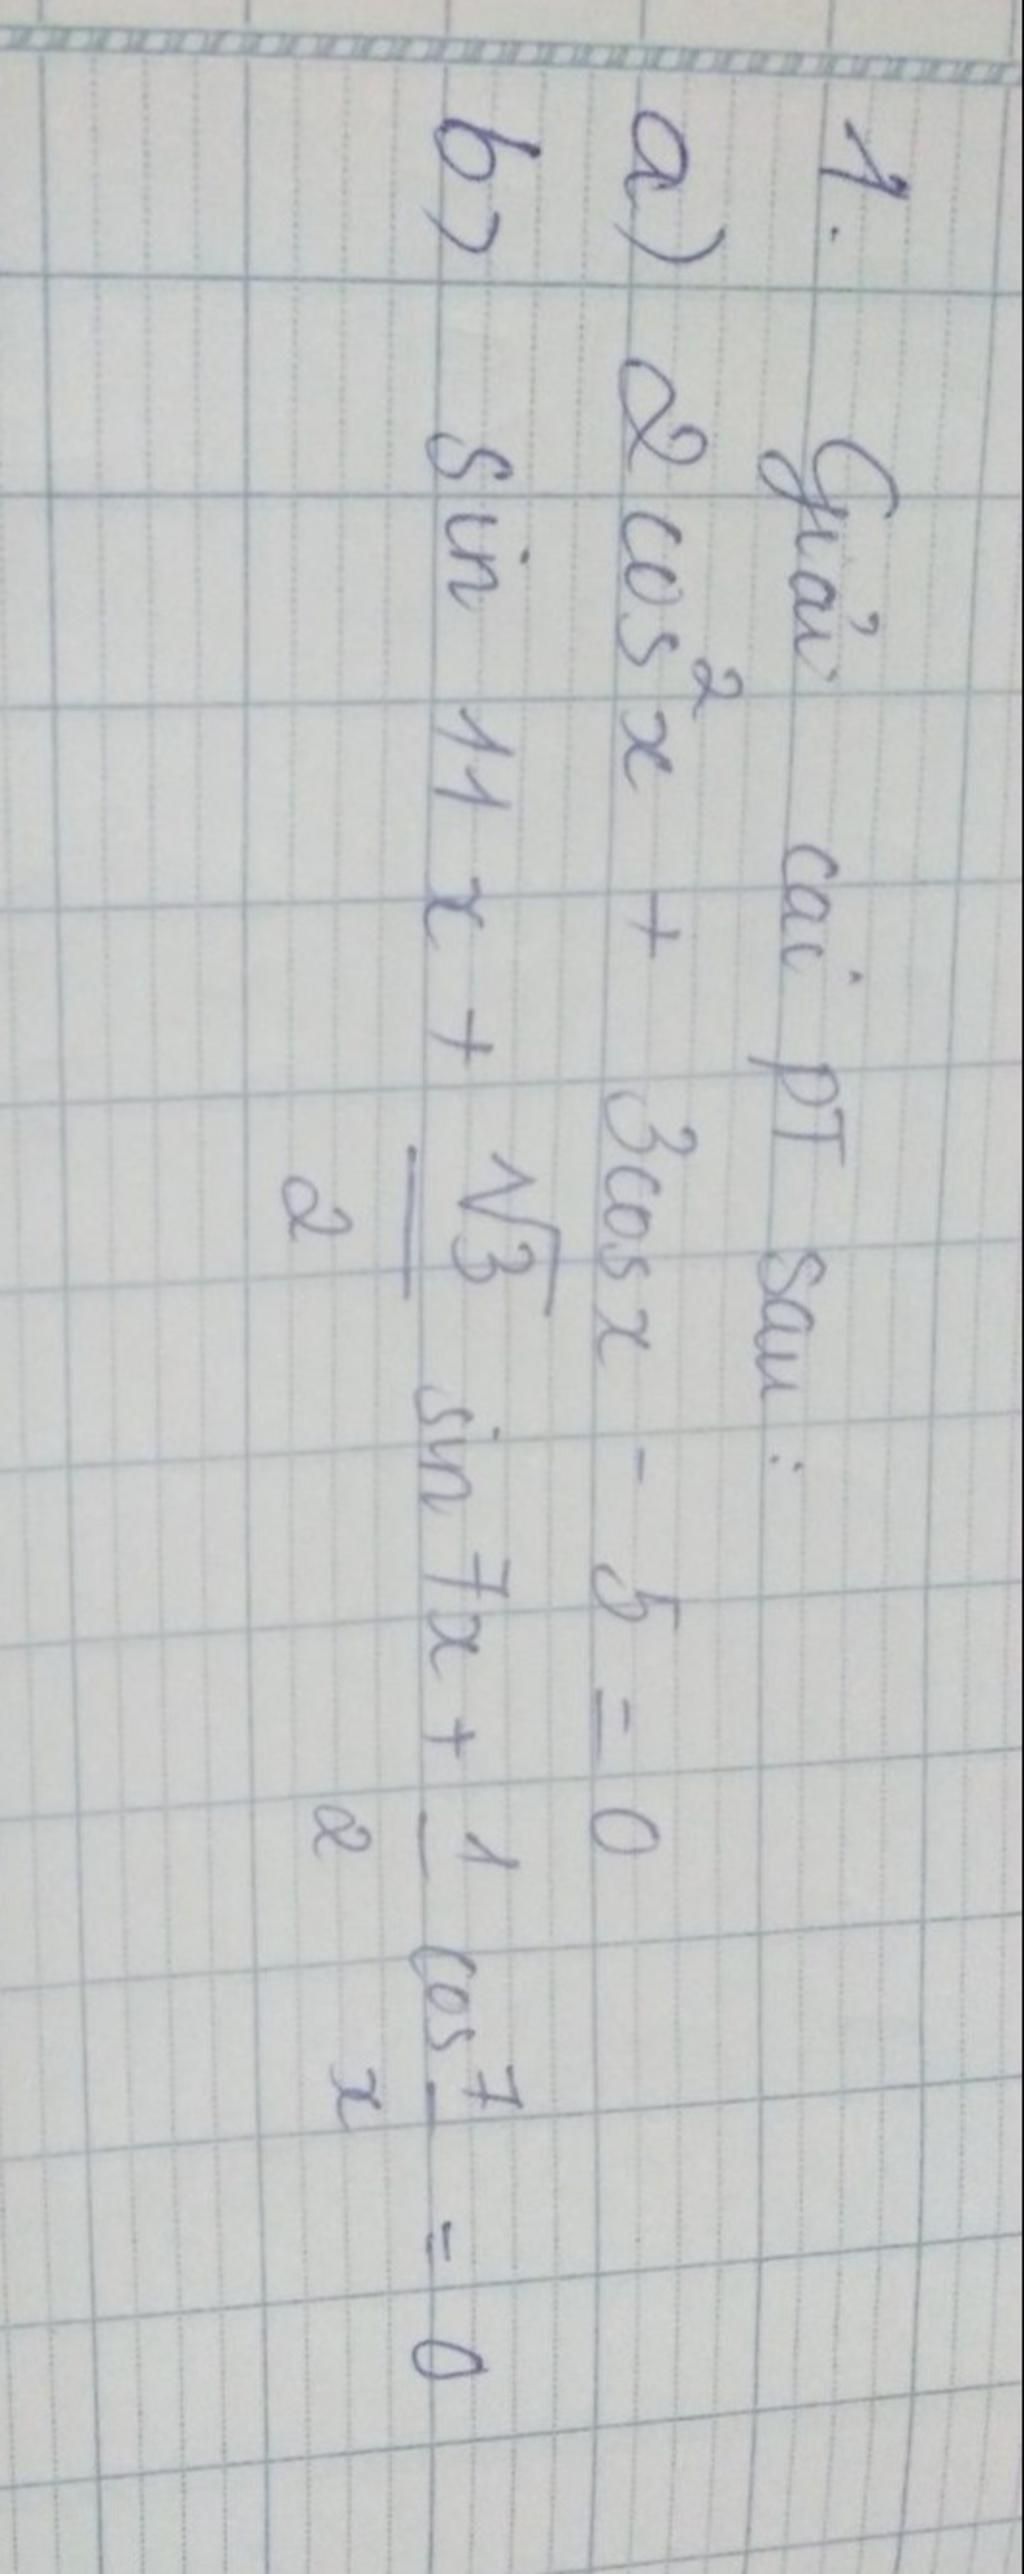 1. Giải các PT sau :
a) 2 cos²x + 3cosx - 5 = 0
b) sin 11x + √3/2 sin 7x + 1/2 cos 7/x = 0